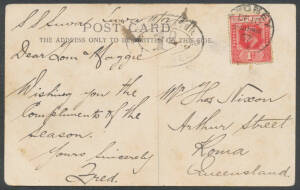 S S Suva
POST CARD.
THE ADDRESS ONLY TO BE WRITTEN ON THIS SIDE.
Dear Tom Maggie
Wishing you the
Compliments of the
Season.
Yours Sincerely
Fred.
Mr Thos Nixon
Arthur Street
Roma
Queensland.